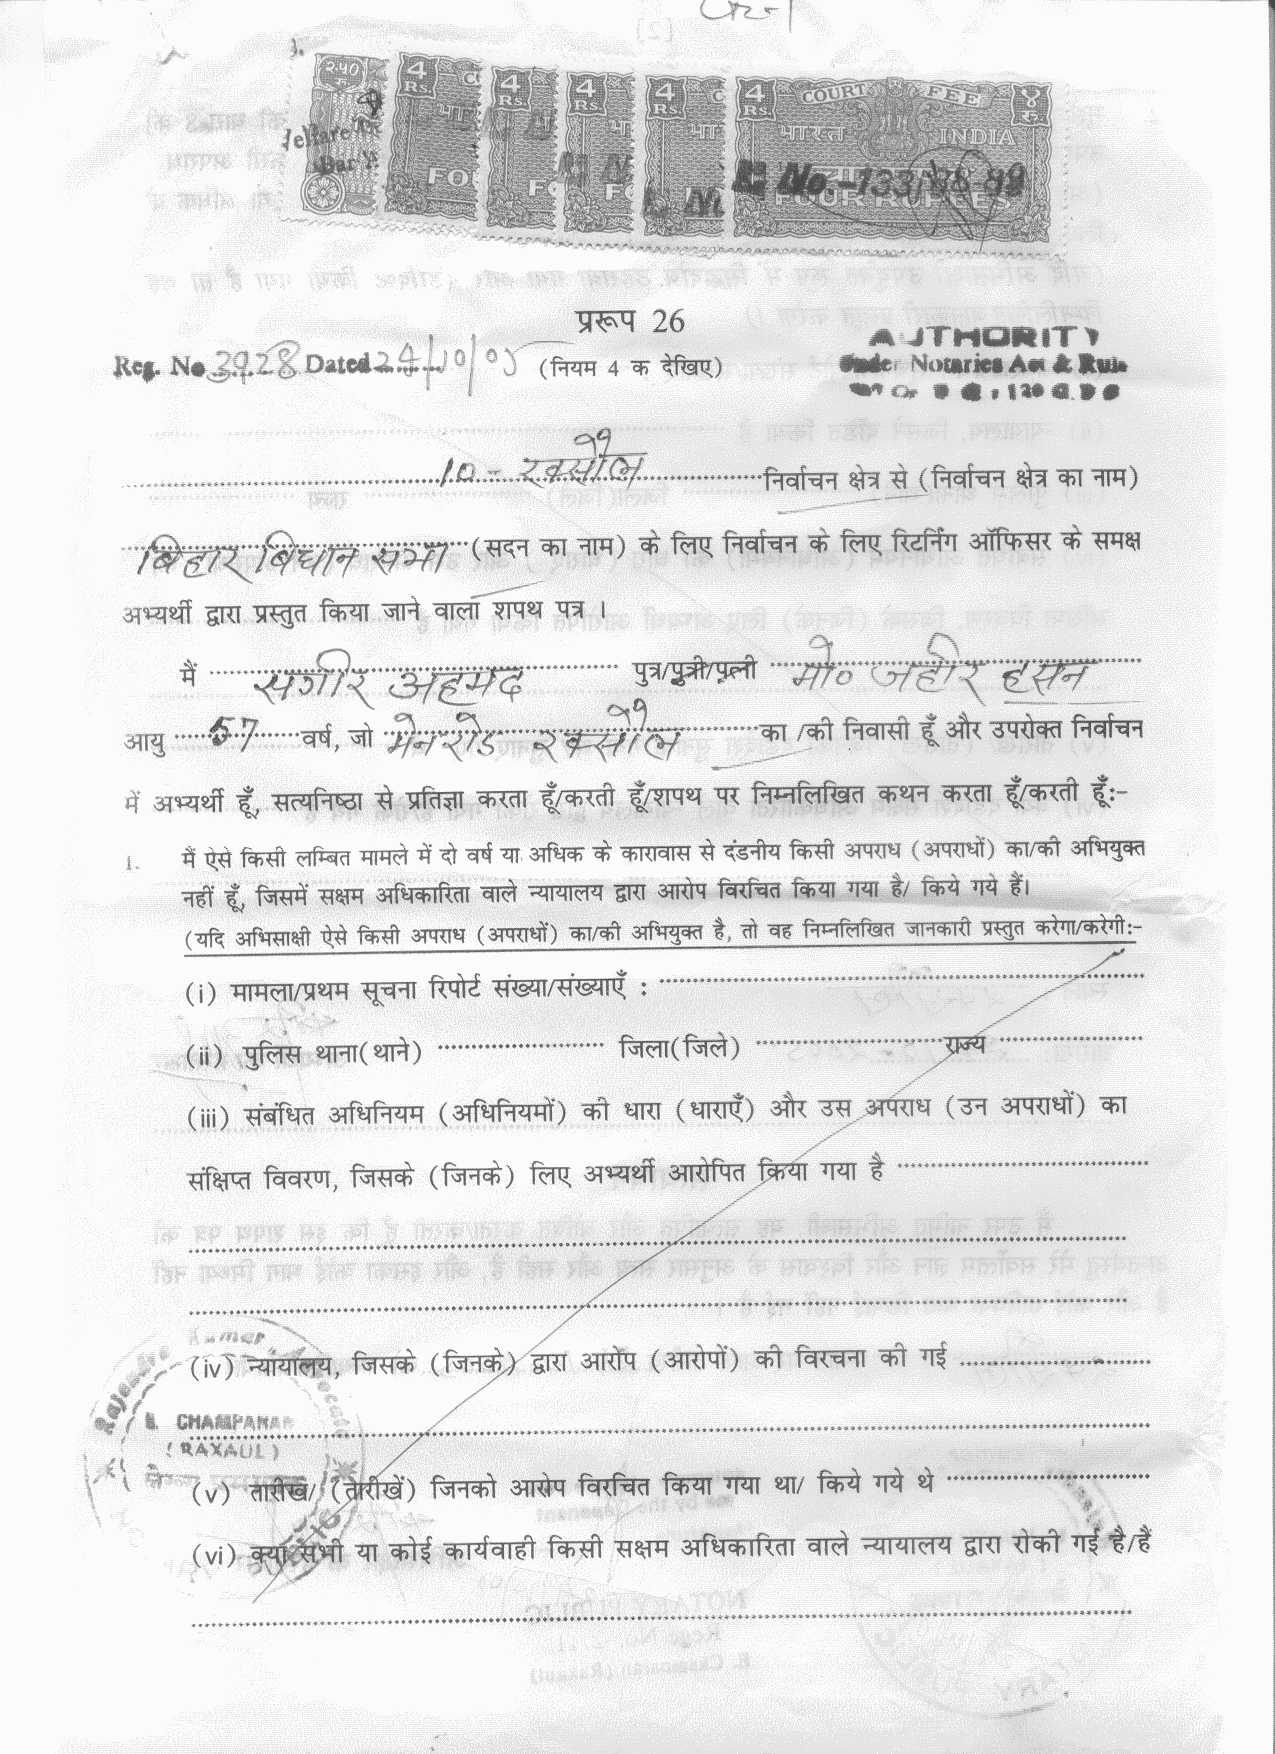 २.५०
4 Rs.
4 Rs.
4 Rs.
4 Rs.
4 Rs. COURT FEE ४ रु.
भारत INDIA
FOUR RUPEES
प्ररूप 26
AUTHORITY
Reg. No 3928 Dated 24/10/05 (नियम 4 क देखिए)
Under Notaries Act & Rule
10 - रक्सौल निर्वाचन क्षेत्र से (निर्वाचन क्षेत्र का नाम)
बिहार बिधान सभा (सदन का नाम) के लिए निर्वाचन के लिए रिटर्निंग ऑफिसर के समक्ष
अभ्यर्थी द्वारा प्रस्तुत किया जाने वाला शपथ पत्र ।
मैं सगीर अहमद पुत्र/पुत्री/पत्नी मो० जहीर हसन
आयु 57 वर्ष, जो मेन रोड रक्सौल का /की निवासी हूँ और उपरोक्त निर्वाचन
में अभ्यर्थी हूँ, सत्यनिष्ठा से प्रतिज्ञा करता हूँ/करती हूँ/शपथ पर निम्नलिखित कथन करता हूँ/करती हूँ:-
1. मैं ऐसे किसी लम्बित मामले में दो वर्ष या अधिक के कारावास से दंडनीय किसी अपराध (अपराधों) का/की अभियुक्त
नहीं हूँ, जिसमें सक्षम अधिकारिता वाले न्यायालय द्वारा आरोप विरचित किया गया है/ किये गये हैं।
(यदि अभिसाक्षी ऐसे किसी अपराध (अपराधों) का/की अभियुक्त है, तो वह निम्नलिखित जानकारी प्रस्तुत करेगा/करेगी:-
(i) मामला/प्रथम सूचना रिपोर्ट संख्या/संख्याएँ :
(ii) पुलिस थाना(थाने) जिला(जिले) राज्य
(iii) संबंधित अधिनियम (अधिनियमों) की धारा (धाराएँ) और उस अपराध (उन अपराधों) का
संक्षिप्त विवरण, जिसके (जिनके) लिए अभ्यर्थी आरोपित किया गया है
(iv) न्यायालय, जिसके (जिनके) द्वारा आरोप (आरोपों) की विरचना की गई
Rajendra Kumar, Advocate
E. CHAMPARAN
(RAXAUL)
(v) तारीख/ (तारीखें) जिनको आरोप विरचित किया गया था/ किये गये थे
(vi) क्या सभी या कोई कार्यवाही किसी सक्षम अधिकारिता वाले न्यायालय द्वारा रोकी गई है/हैं